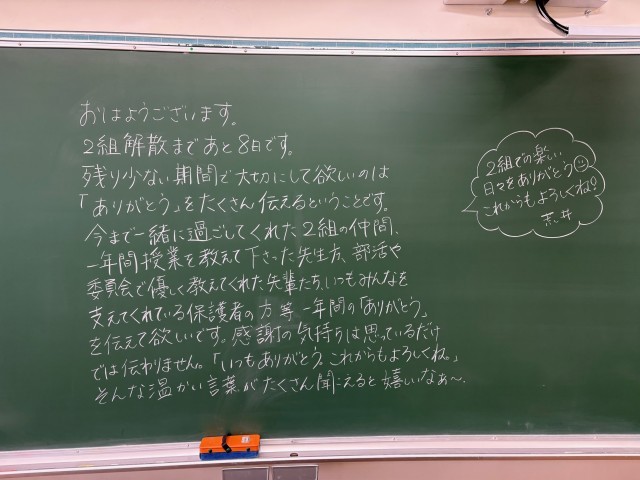 おはようございます。
2組解散まであと8日です。
残り少ない期間で大切にして欲しいのは
「ありがとう」をたくさん伝えるということです。
今まで一緒に過ごしてくれた2組の仲間、
一年間授業を教えて下さった先生方、部活や
委員会で優しく教えてくれた先輩たち、いつもみんなを
支えてくれている保護者の方等一年間の「ありがとう」
を伝えて欲しいです。感謝の気持ちは思っているだけ
では伝わりません。「いつもありがとう。これからもよろしくね。」
そんな温かい言葉がたくさん聞こえると嬉しいなぁ〜。
2組での楽しい
日々をありがとう
これからもよろしくね!
荒井